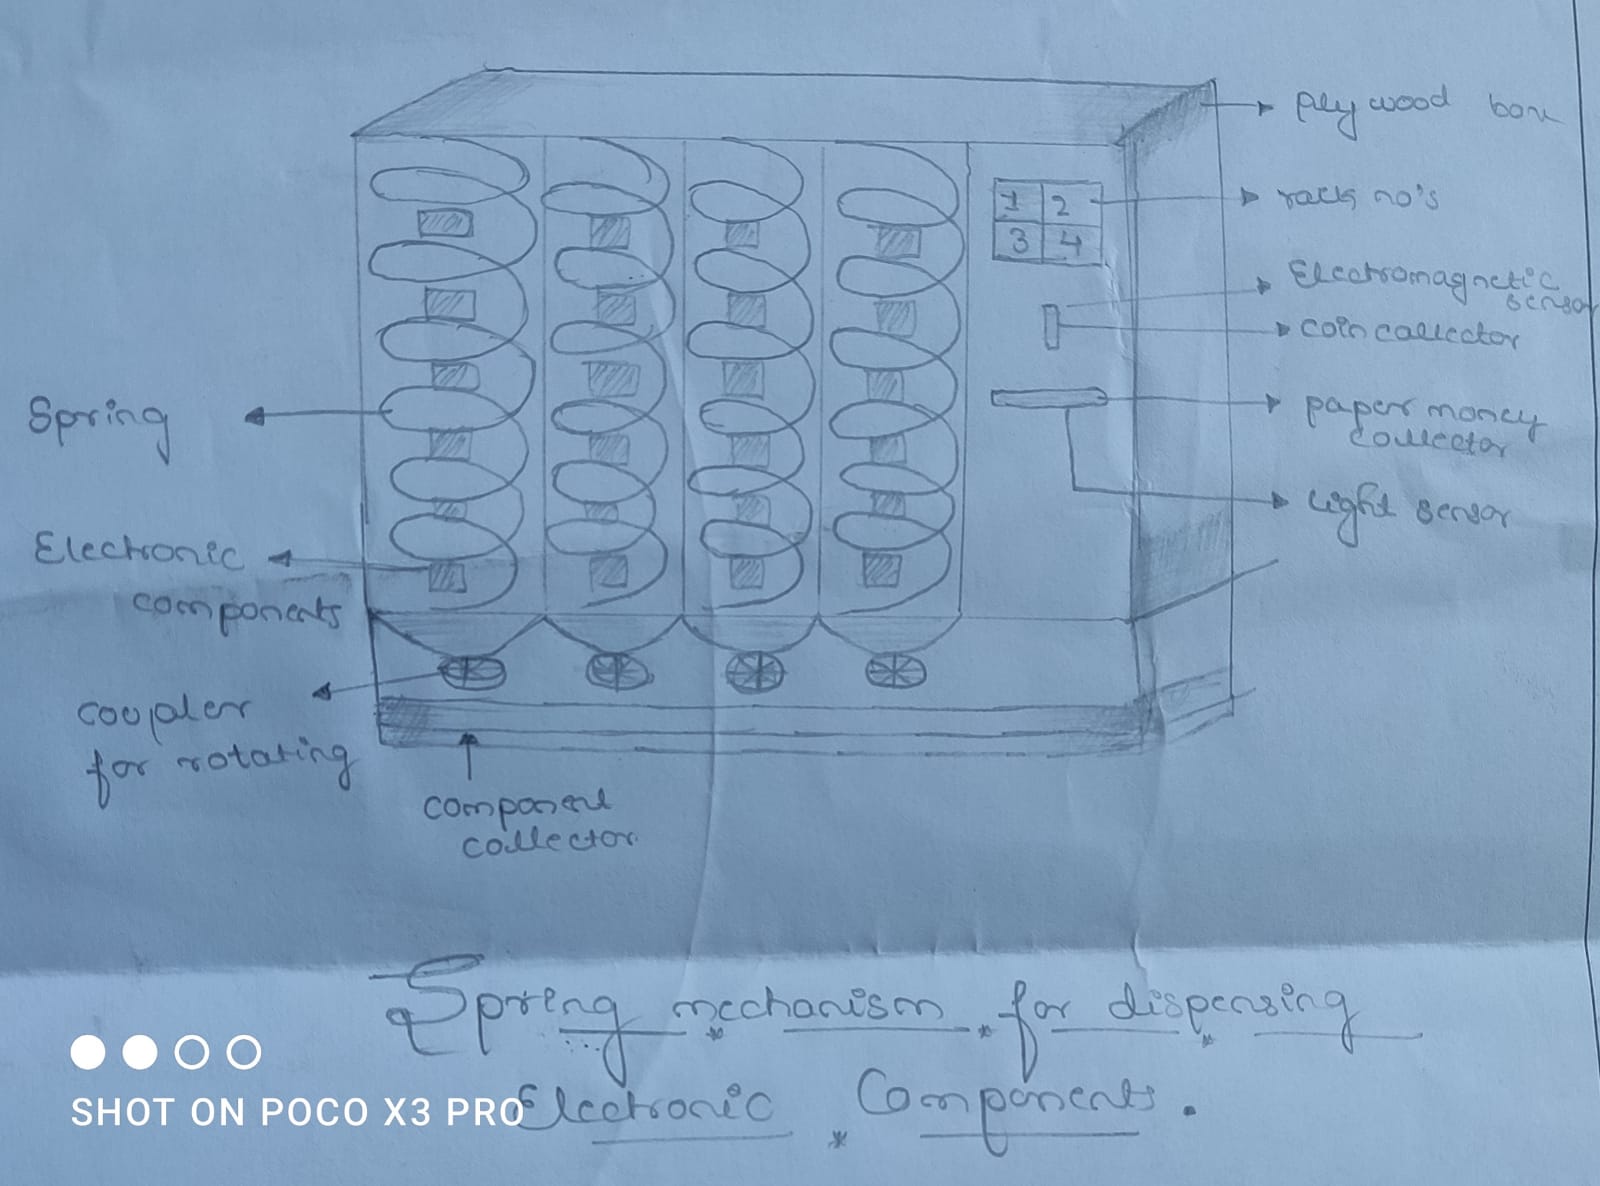 Plywood box
rack no's
1 2
3 4
Electromagnetic
sensor
coin collector
paper money
collector
light sensor
Spring
Electronic
components
coupler
for rotating
component
collector
Spring mechanism for dispensing
Electronic Components.
SHOT ON POCO X3 PRO